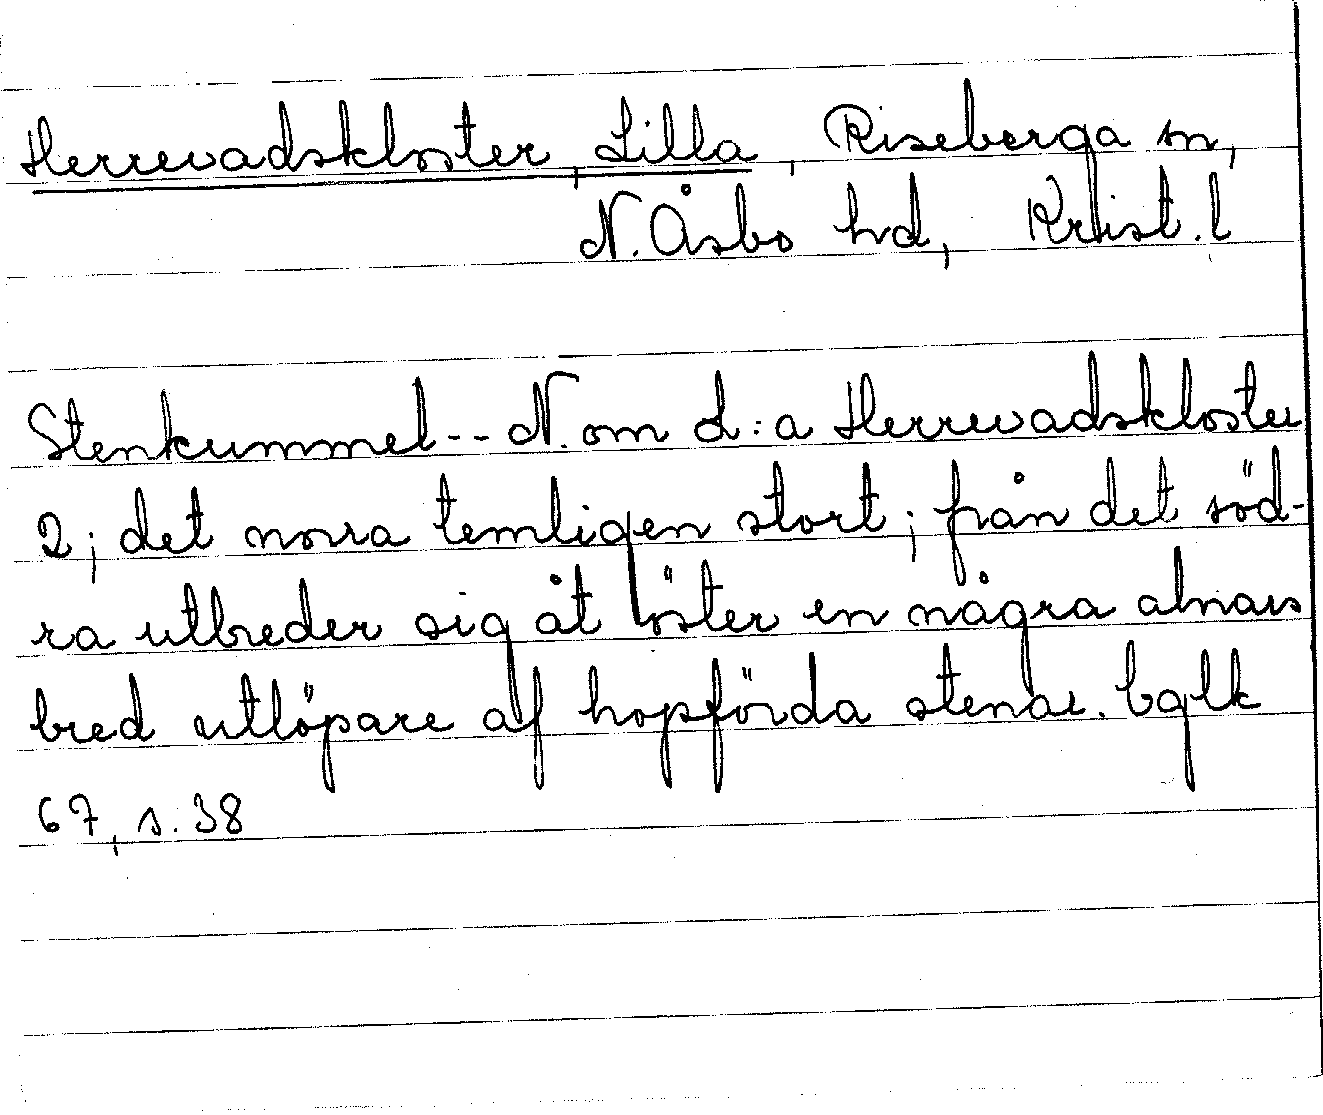 Herrevadskloster, Lilla, Riseberga sn,
N. Åsbo hd, Krist. l
Stenkummel -- N. om L:a Herrevadskloster
2; det norra temligen stort; från det söd-
ra utbreder sig åt öster en några alnars
bred utlöpare af hopförda stenar. bglk
67, s. 38